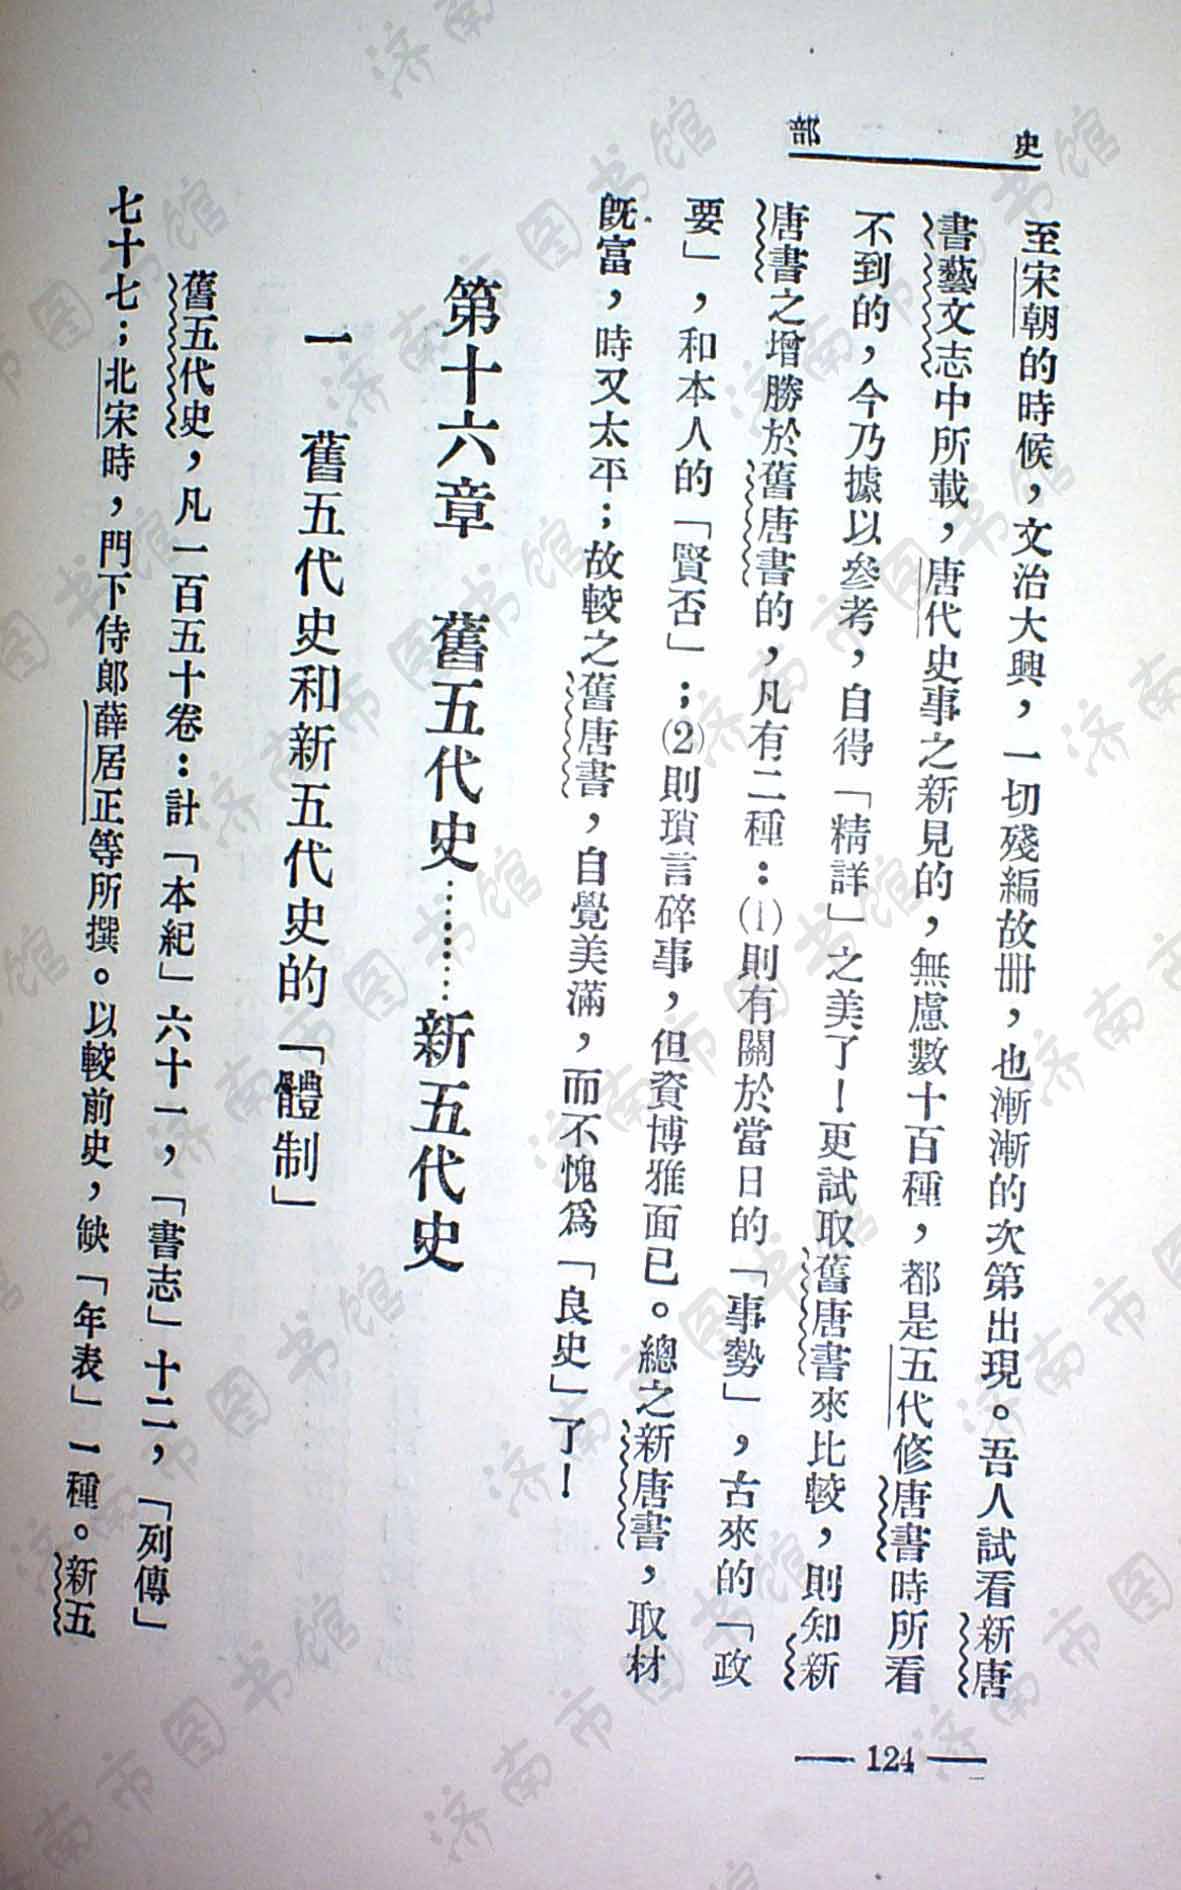 史部
至宋朝的時候，文治大興，一切殘編故冊，也漸漸的次第出現。吾人試看新唐
書藝文志中所載，唐代史事之新見的，無慮數十百種，都是五代修唐書時所看
不到的，今乃據以參考，自得「精詳」之美了！更試取舊唐書來比較，則知新
唐書之增勝於舊唐書的，凡有二種：⑴則有關於當日的「事勢」，古來的「政
要」，和本人的「賢否」；⑵則瑣言碎事，但資博雅面已。總之新唐書，取材
既富，時又太平；故較之舊唐書，自覺美滿，而不愧爲「良史」了！
第十六章　舊五代史………新五代史
一　舊五代史和新五代史的「體制」
舊五代史，凡一百五十卷：計「本紀」六十一，「書志」十二，「列傳」
七十七；北宋時，門下侍郎薛居正等所撰。以較前史，缺「年表」一種。新五
— 124 —
济南市图书馆